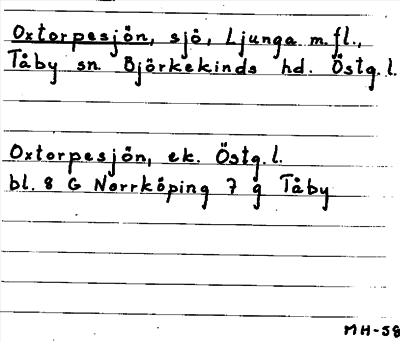 Oxtorpesjön, sjö, Ljunga m.fl.,
Tåby sn Björkekinds hd. Östg.l.
Oxtorpesjön, ek. Östg.l.
bl. 8 G Norrköping 7 g Tåby
MH-58